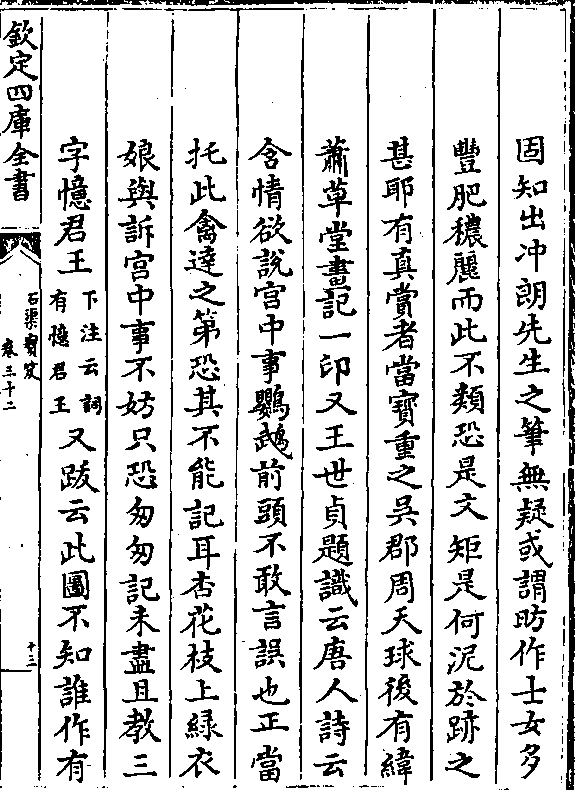 固知出冲朗先生之筆無疑或謂昉作士女多
豐肥穠麗而此不類恐是文矩是何泥於跡之
甚耶有真賞者當寶重之吳郡周天球後有緯
蕭草堂畫記一印又王世貞題識云唐人詩云
含情欲說宫中事鸚鵡前頭不敢言誤也正當
托此禽達之第恐其不能記耳杏花枝上緑衣
娘與訴宫中事不妨只恐匆匆記未盡且教三
字憶君王下注云詞有憶君王又跋云此圖不知誰作有
欽定四庫全書
石渠寳笈
卷三十二
十三